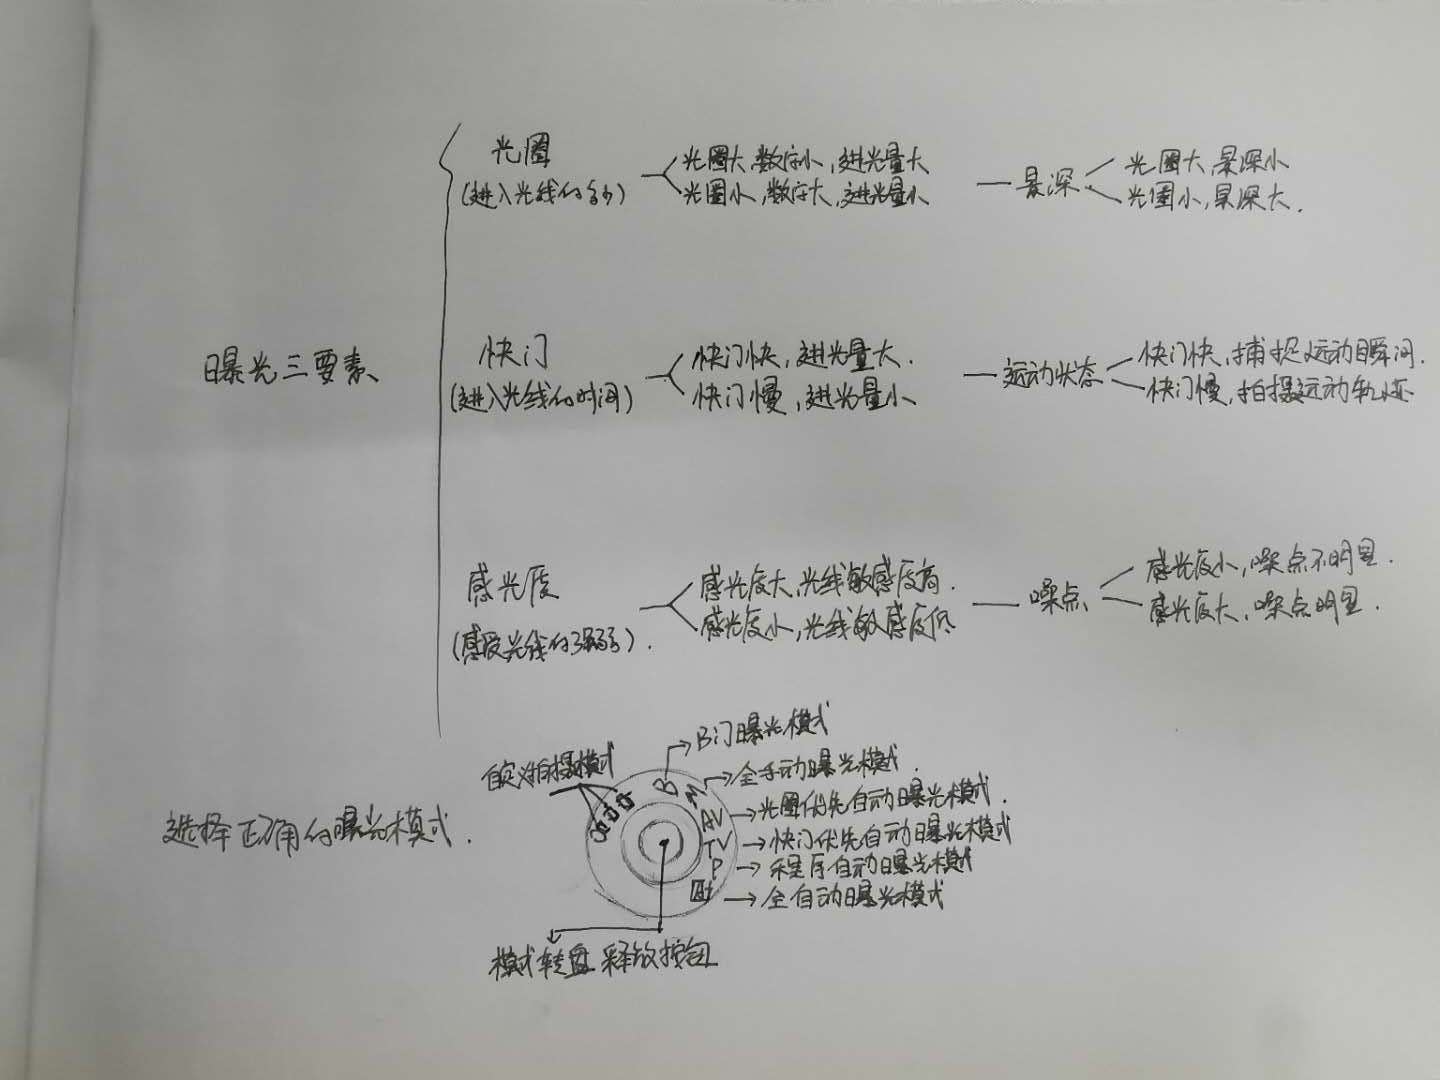 光圈
(进入光线的多少)
光圈大,数字小,进光量大
光圈小,数字大,进光量小
景深
光圈大,景深小
光圈小,景深大.
曝光三要素
快门
(进入光线的时间)
快门快,进光量大.
快门慢,进光量小
运动状态
快门快,捕捉运动瞬间.
快门慢,拍摄运动轨迹
感光度
(感受光线的强弱).
感光度大,光线敏感度高.
感光度小,光线敏感度低
噪点
感光度小,噪点不明显.
感光度大,噪点明显.
选择正确的曝光模式.
自定义拍摄模式
C3 C2 C1
B
M
AV
TV
P
A+
B门曝光模式
全手动曝光模式.
光圈优先自动曝光模式.
快门优先自动曝光模式
程序自动曝光模式
全自动曝光模式
模式转盘释放按钮